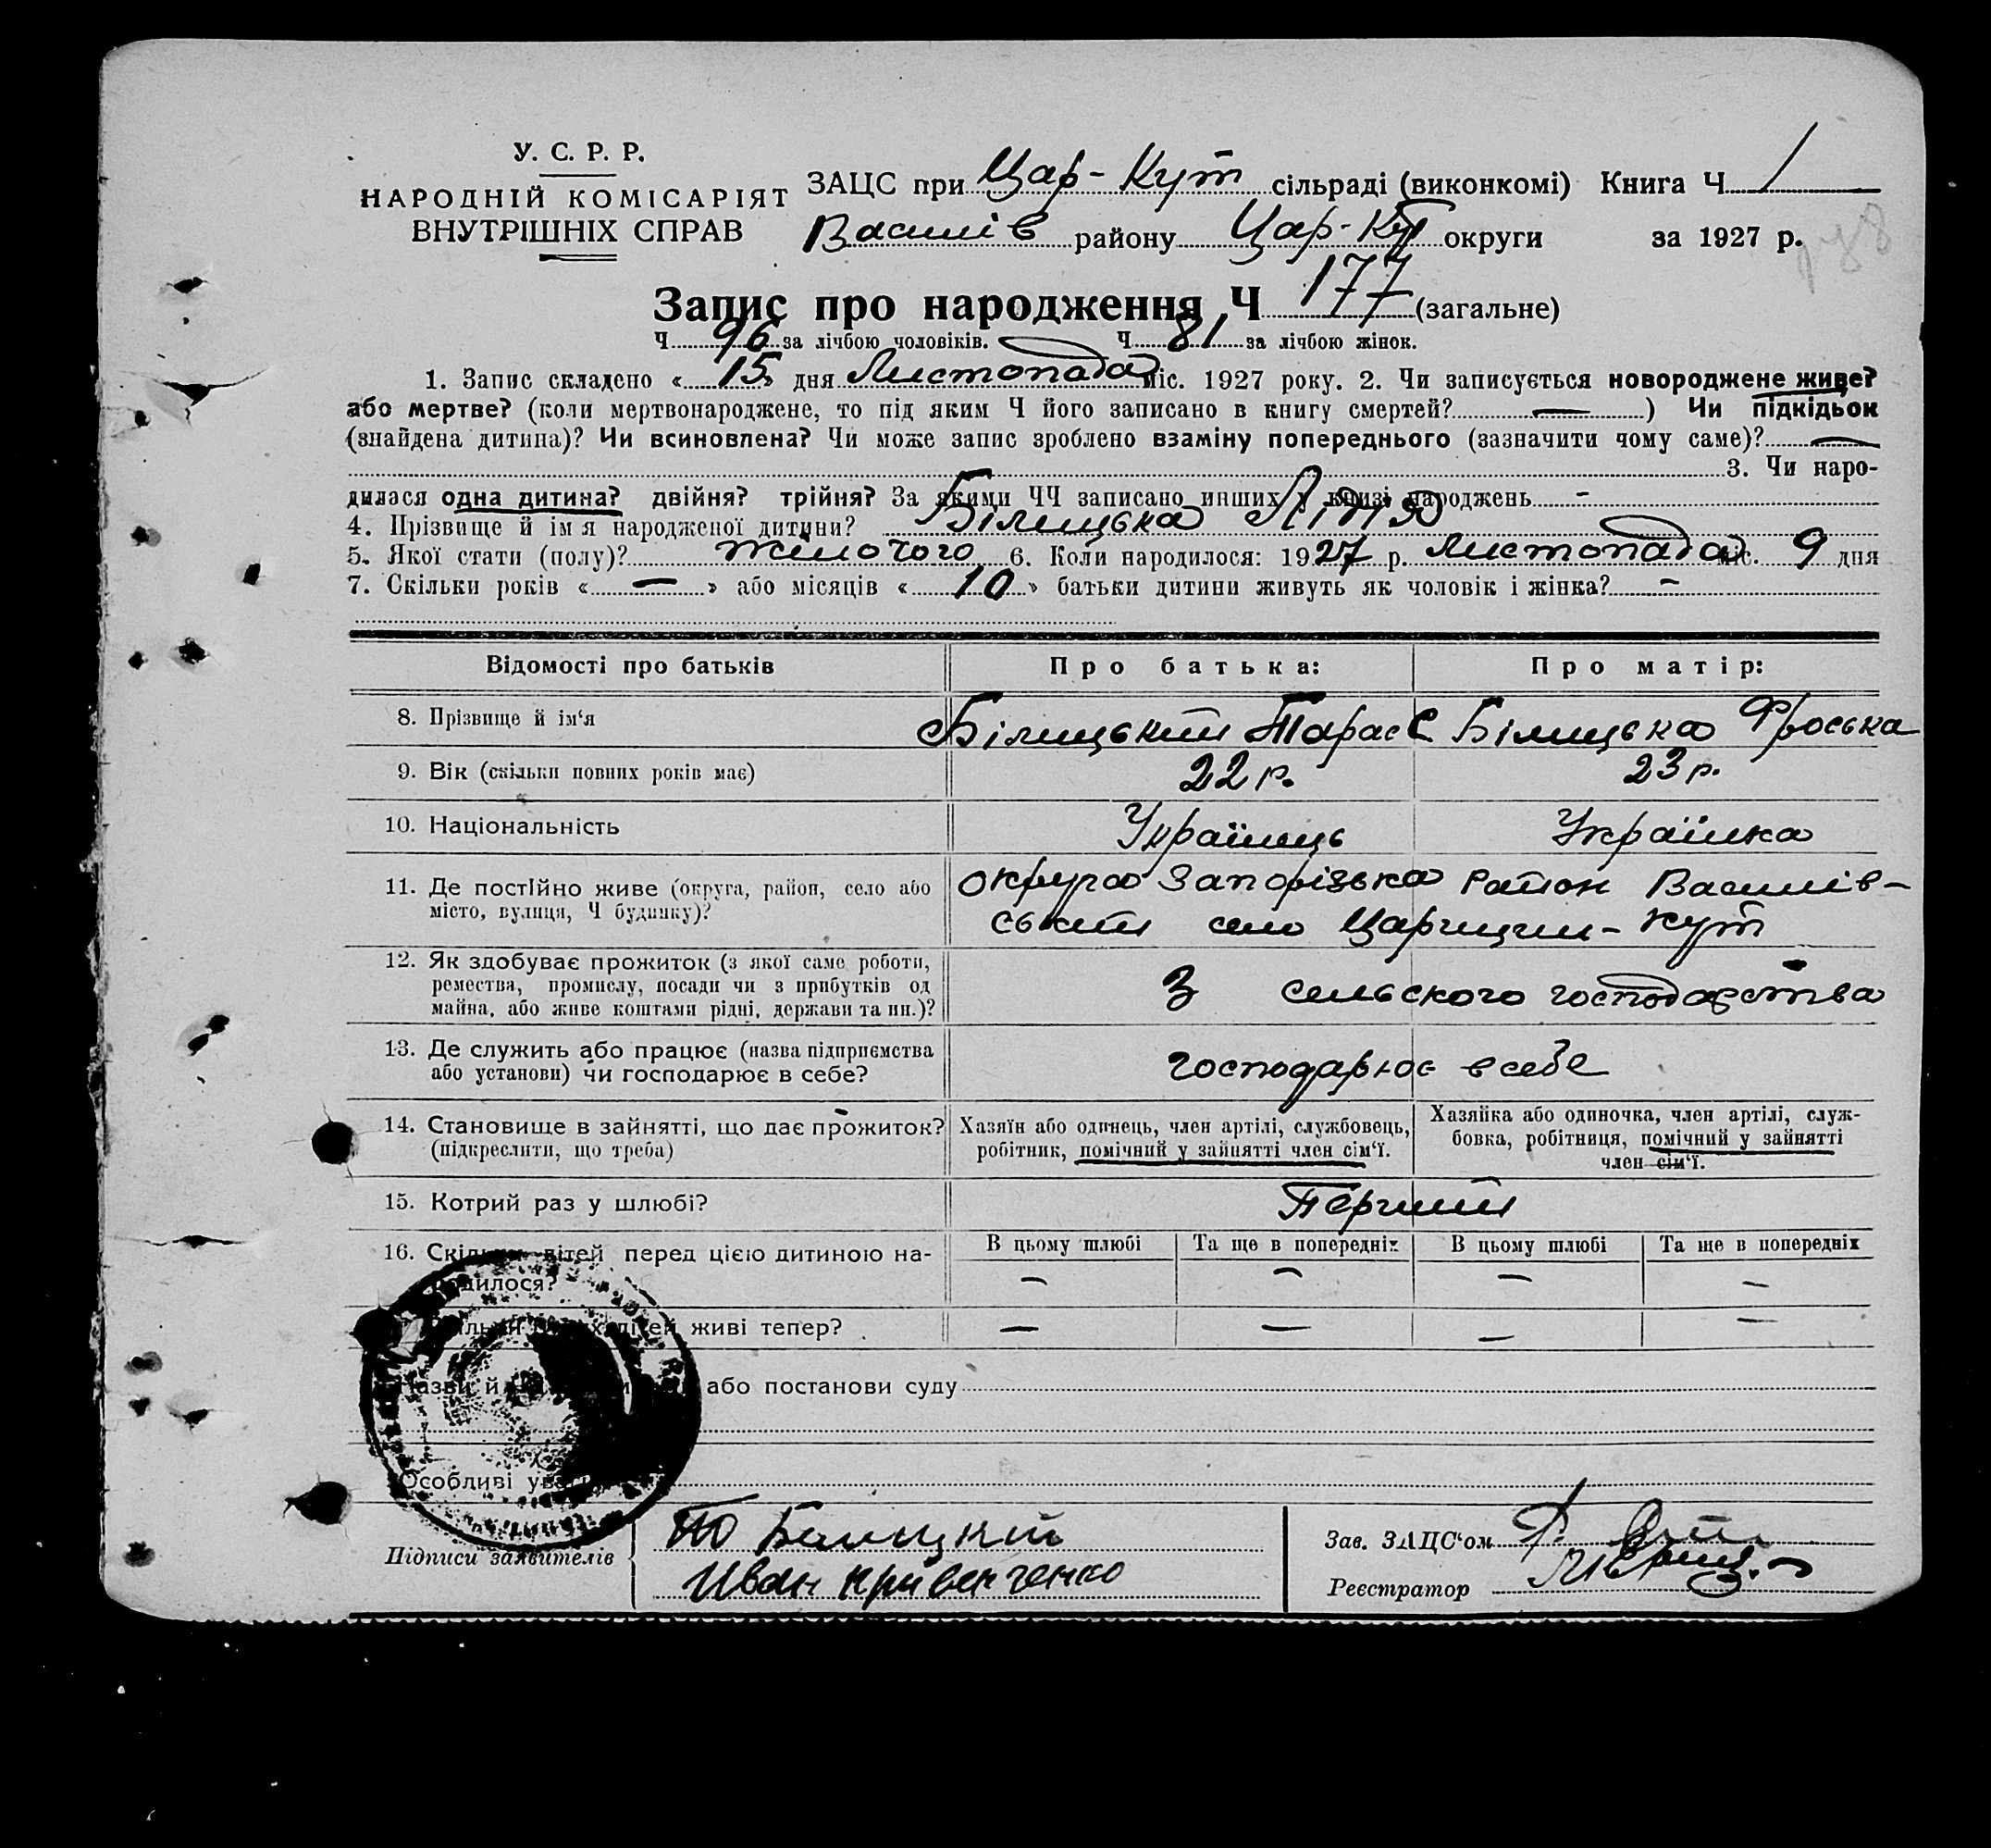 У. С. Р. Р.
НАРОДНІЙ КОМІСАРІЯТ
ВНУТРІШНІХ СПРАВ
ЗАЦС при Цар-Кут сільраді (виконкомі) Книга Ч 1
Василів району Цар-Кут округи за 1927 р.
Запис про народження Ч 177 (загальне)
Ч 96 за лічбою чоловіків. Ч 81 за лічбою жінок.
1. Запис складено « 15 » дня Листопада міс. 1927 року. 2. Чи записується новороджене живе?
або мертве? (коли мертвонароджене, то під яким Ч його записано в книгу смертей? — ) Чи підкідьок
(знайдена дитина)? Чи всиновлена? Чи може запис зроблено взаміну попереднього (зазначити чому саме)? —
3. Чи наро-
дилася одна дитина? двійня? трійня? За якими ЧЧ записано инших у книзі народжень -
4. Прізвище й ім я народженої дитини? Білицька Лідія
5. Якої стати (полу)? жіночого 6. Коли народилося: 1927 р. Листопада міс. 9 дня
7. Скільки років « — » або місяців « 10 » батьки дитини живуть як чоловік і жінка? -
Відомості про батьків Про батька: Про матір:
8. Прізвище й ім‘я Білицький Тарас Білицька Фроська
9. Вік (скільки повних років має) 22 р. 23 р.
10. Національність Українець Українка
11. Де постійно живе (округа, район, село або округа Запорізька район Василів-
місто, вулиця, Ч будинку)? ський село Царицин-Кут
12. Як здобуває прожиток (з якої саме роботи,
ремества, промислу, посади чи з прибутків од З сельского господарства
майна, або живе коштами рідні, держави та ин.)?
13. Де служить або працює (назва підприємства
або установи) чи господарює в себе? господарює в себе
14. Становище в зайнятті, що дає прожиток? Хазяїн або одинець, член артілі, службовець, Хазяйка або одиночка, член артілі, служ-
(підкреслити, що треба) робітник, помічний у зайнятті член сім‘ї. бовка, робітниця, помічний у зайнятті
член сім‘ї.
15. Котрий раз у шлюбі? Перший
16. Скільки дітей перед цією дитиною на- В цьому шлюбі Та ще в попередніх В цьому шлюбі Та ще в попередніх
родилося? — — — —
живі тепер? — — — —
Назви й або постанови суду
Особливі
Підписи заявителів Білицкий
Иван кривенченко
Зав. ЗАЦС‘ом
Реєстратор